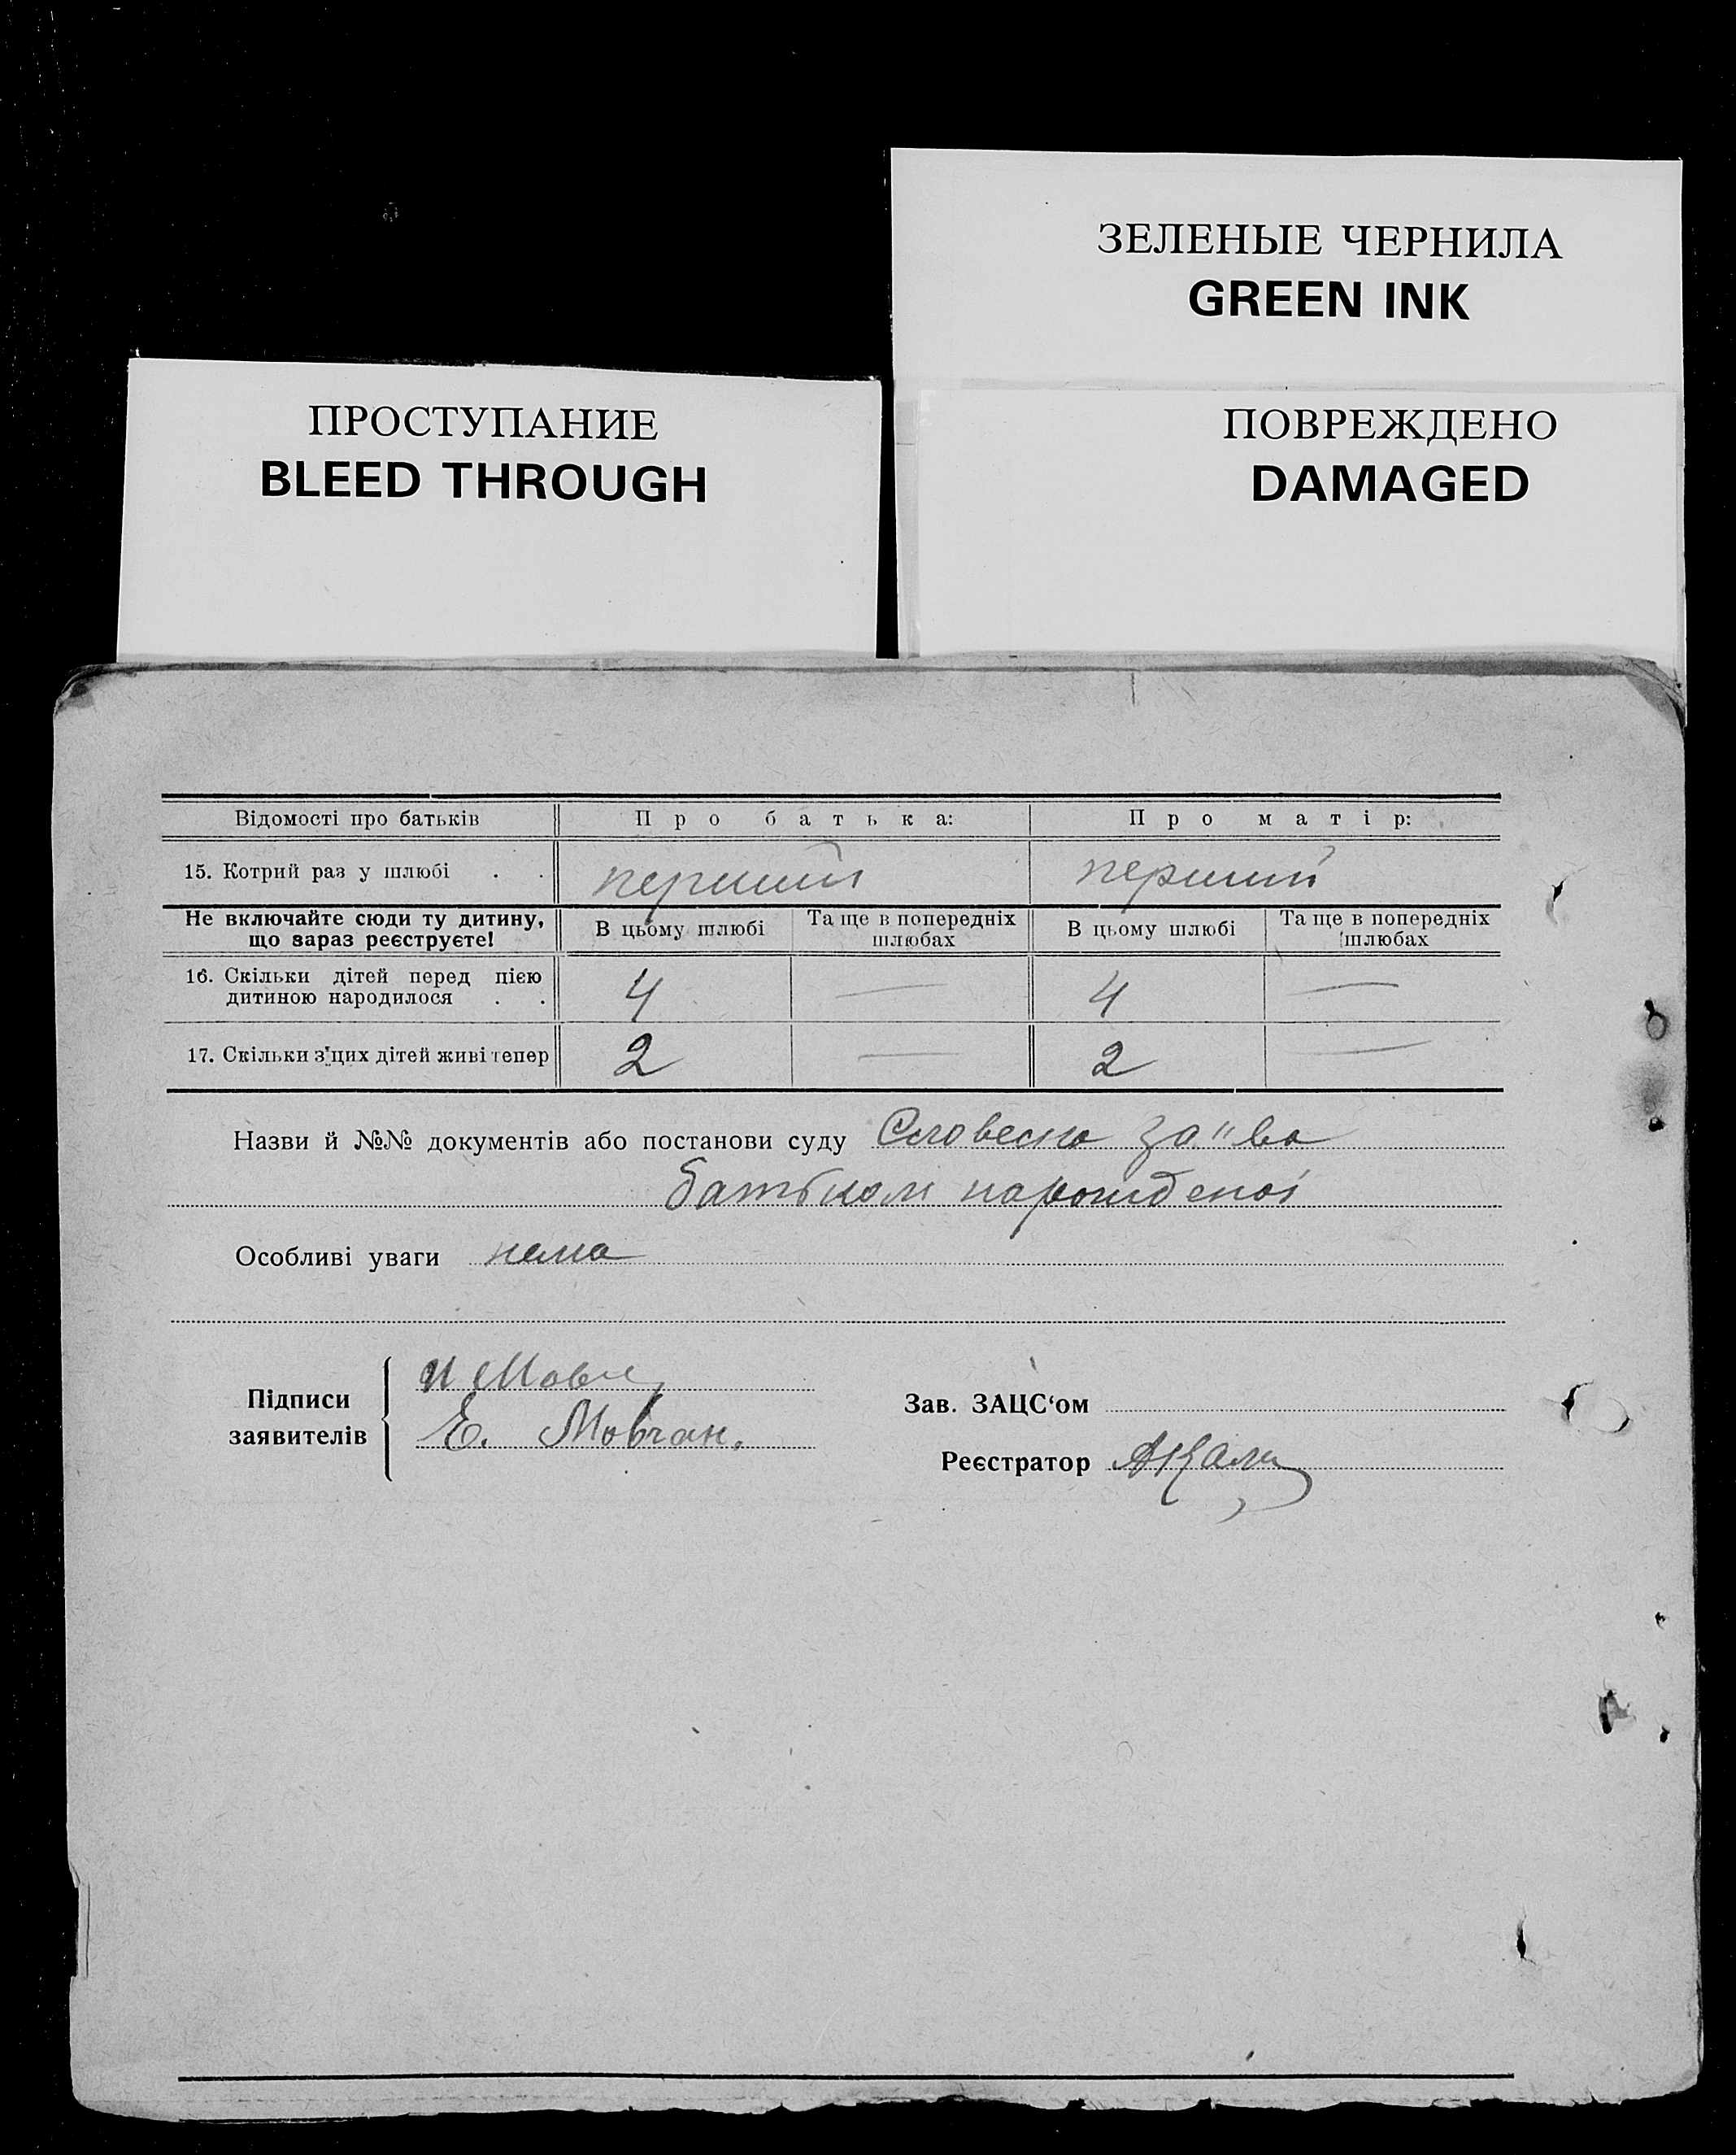 ЗЕЛЕНЫЕ ЧЕРНИЛА
GREEN INK
ПРОСТУПАНИЕ
BLEED THROUGH
ПОВРЕЖДЕНО
DAMAGED
Відомості про батьків Про батька: Про матір:
15. Котрий раз у шлюбі . . перший перший
Не включайте сюди ту дитину, що зараз реєструєте! В цьому шлюбі Та ще в попередніх шлюбах В цьому шлюбі Та ще в попередніх шлюбах
16. Скільки дітей перед цією дитиною народилося . . 4 — 4 —
17. Скільки з'цих дітей живі тепер 2 — 2 —
Назви й №№ документів або постанови суду Словесно
батьком
Особливі уваги нема
Підписи заявителів
Е. Мовчан.
Зав. ЗАЦС‘ом
Реєстратор